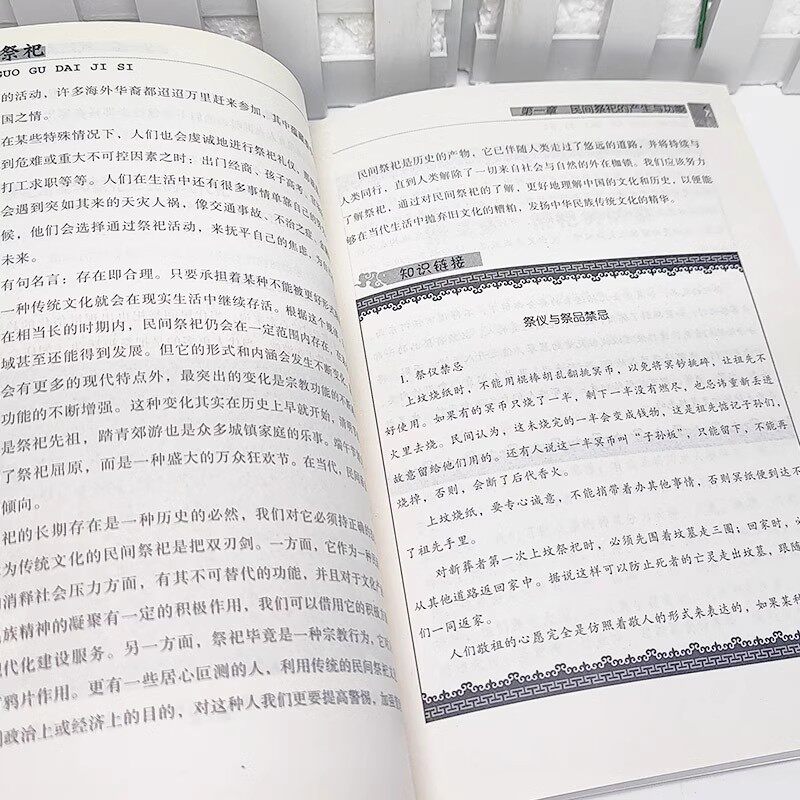 祭祀
GUO GU DAI JI SI
的活动，许多海外华裔都迢迢万里赶来参加，其中蕴藏
国之情。
在某些特殊情况下，人们也会虔诚地进行祭祀礼仪，
到危难或重大不可控因素之时：出门经商、孩子高考、
打工求职等等。人们在生活中还有很多事情单靠自己的
会遇到突如其来的天灾人祸，像交通事故、不治之症，
候，他们会选择通过祭祀活动，来抚平自己的焦虑，为
未来。
有句名言：存在即合理。只要承担着某种不能被更好
一种传统文化就会在现实生活中继续存活。根据这个
在相当长的时期内，民间祭祀仍会在一定范围内存在，
域甚至还能得到发展。但它的形式和内涵会发生不断变
会有更多的现代特点外，最突出的变化是宗教功能的不
功能的不断增强。这种变化其实在历史上早就开始，清明
是祭祀先祖，踏青郊游也是众多城镇家庭的乐事。端午
了祭祀屈原，而是一种盛大的万众狂欢节。在当代，民间
倾向。
祀的长期存在是一种历史的必然，我们对它必须持正确的
为传统文化的民间祭祀是把双刃剑。一方面，它作为一种
消释社会压力方面，有其不可替代的功能，并且对于文化
族精神的凝聚有一定的积极作用，我们可以借用它的积极
现代化建设服务。另一方面，祭祀毕竟是一种宗教行为，它
鸦片作用。更有一些居心叵测的人，利用传统的民间祭祀
政治上或经济上的目的，对这种人我们更要提高警惕，加强
第一章 民间祭祀的产生与功能
民间祭祀是历史的产物，它已伴随人类走过了悠远的道路，并将持续与
人类同行，直到人类解除了一切来自社会与自然的外在枷锁。我们应该努力
了解祭祀，通过对民间祭祀的了解，更好地理解中国的文化和历史，以便能
够在当代生活中抛弃旧文化的糟粕，发扬中华民族传统文化的精华。
知识链接
祭仪与祭品禁忌
1. 祭仪禁忌
上坟烧纸时，不能用棍棒胡乱翻挑冥币，以免将冥钞挑碎，让祖先不
好使用。如果有的冥币只烧了一半，剩下一半没有燃尽，也忌讳重新丢进
火里去烧。民间认为，这未烧完的一半会变成钱物，这是祖先惦记子孙们，
故意留给他们用的。还有人说这一半冥币叫“子孙板”，只能留下，不能再
烧掉，否则，会断了后代香火。
上坟烧纸，要专心诚意，不能捎带着办其他事情，否则冥纸便到达不
了祖先手里。
对新葬者第一次上坟祭祀时，必须先围着坟墓走三圈；回家时，必
从其他道路返回家中。据说这样可以防止死者的亡灵走出坟墓，跟随
们一同返家。
人们敬祖的心愿完全是仿照着敬人的形式来表达的，如果某种